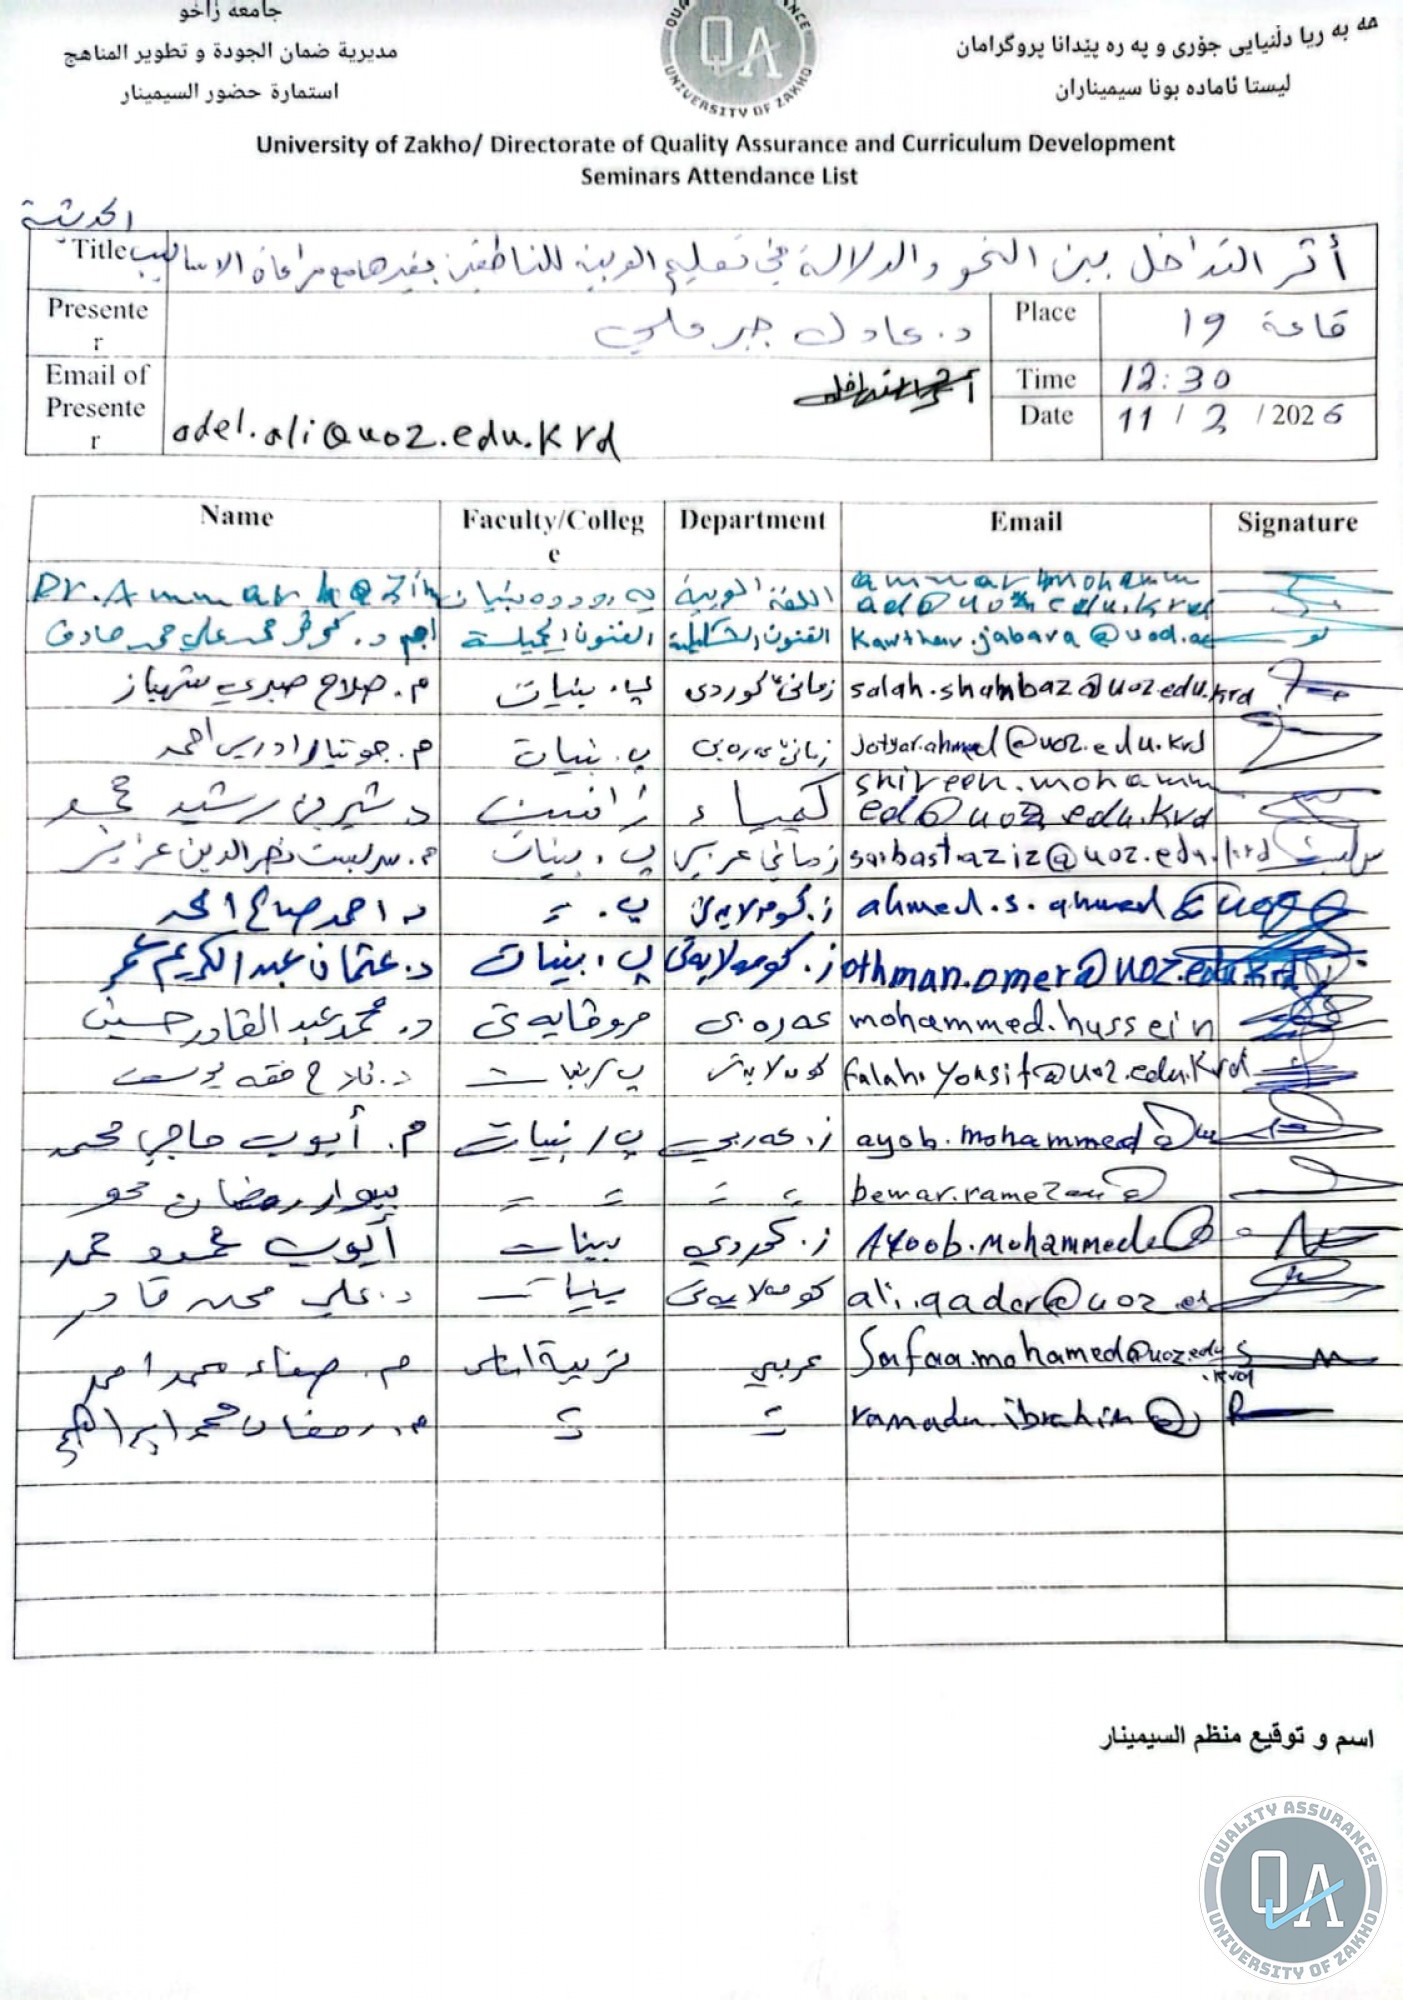 جامعة زاخو
مديرية ضمان الجودة و تطوير المناهج
استمارة حضور السيمينار
QA
UNIVERSITY OF ZAKHO
مه به ریا دلنیایی جۆری و په ره پێدانا پروگرامان
لیستا ئاماده بونا سیمیناران
University of Zakho/ Directorate of Quality Assurance and Curriculum Development
Seminars Attendance List
الحديثة
Title أثر التداخل بين النحو والدلالة في تعليم العربية للناطقين بغيرها مع مراعاة الاساليب
Presenter د. عادل جبر علي Place قاعة ١٩
Email of Presenter adel.ali@uoz.edu.krd Time 12:30
Date 11 / 2 / 2026
Name Faculty/College Department Email Signature
Dr. Ammar اللغة العربية ammar.mohammad@uoz.edu.krd
الفنون الجميلة الفنون التشكيلية kawthar.jabara@uod.ac
م. صلاح صبري شهباز پ. بنيات زمانێ كوردى salah.shahbaz@uoz.edu.krd
م. جوتيار ادريس احمد پ. بنيات زمانێ عەرەبى jotyar.ahmed@uoz.edu.krd
د. شيرين رشيد محمد زانست كيمياء shireen.mohammed@uoz.edu.krd
م. سربست نصرالدين عزيز پ. بنيات زمانى عربي sarbast.aziz@uoz.edu.krd
د. احمد صالح پ. ز. كومەلايەتى ahmed.s.ahmed@uoz
د. عثمان عبدالكريم عمر پ. بنيات ز. كومەلايەتى othman.omer@uoz.edu.krd
د. محمد عبدالقادر حسين مروڤايەتى عەرەبى mohammed.hussein
د. فلاح فقه يوسف پ/بنيات كومەلايەتى falah.yousif@uoz.edu.krd
م. أيوب حاجي محمد پ/بنيات ز. عەرەبي ayob.mohammed@
بيوار رمضان bewar.ramezan@
أيوب محمد بنيات ز. كوردي Ayoob.mohammed@
د. علي قادر بنيات كومەلايەتى ali.qader@uoz.e
م. صفاء محمد احمد تربية اساس عربي Safaa.mohamed@uoz.edu.krd
م. رمضان محمد ابراهيم ramadan.ibrahim@
اسم و توقيع منظم السيمينار
QUALITY ASSURANCE
QA
UNIVERSITY OF ZAKHO